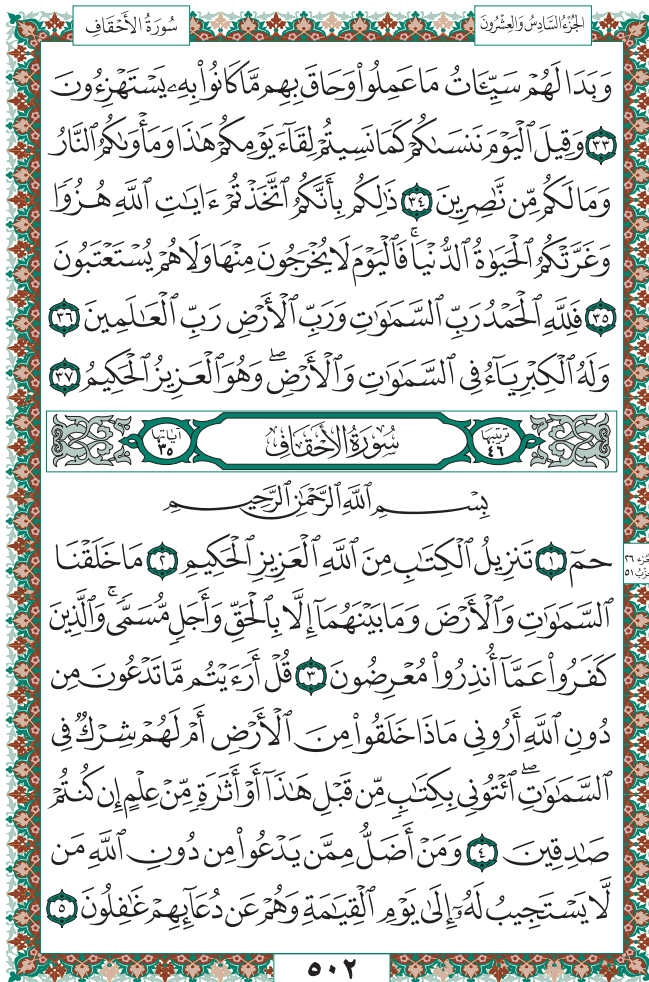 الجُزْءُ السَّادِسُ وَالعِشْرُونَ
سُورَةُ الأَحْقَافِ
وَبَدَا لَهُمْ سَيِّـَٔاتُ مَا عَمِلُوا۟ وَحَاقَ بِهِم مَّا كَانُوا۟ بِهِۦ يَسْتَهْزِءُونَ
٣٣ وَقِيلَ ٱلْيَوْمَ نَنسَىٰكُمْ كَمَا نَسِيتُمْ لِقَآءَ يَوْمِكُمْ هَٰذَا وَمَأْوَىٰكُمُ ٱلنَّارُ
وَمَا لَكُم مِّن نَّٰصِرِينَ ٣٤ ذَٰلِكُم بِأَنَّكُمُ ٱتَّخَذْتُمْ ءَايَٰتِ ٱللَّهِ هُزُوًا
وَغَرَّتْكُمُ ٱلْحَيَوٰةُ ٱلدُّنْيَا ۚ فَٱلْيَوْمَ لَا يُخْرَجُونَ مِنْهَا وَلَا هُمْ يُسْتَعْتَبُونَ
٣٥ فَلِلَّهِ ٱلْحَمْدُ رَبِّ ٱلسَّمَٰوَٰتِ وَرَبِّ ٱلْأَرْضِ رَبِّ ٱلْعَٰلَمِينَ ٣٦
وَلَهُ ٱلْكِبْرِيَآءُ فِى ٱلسَّمَٰوَٰتِ وَٱلْأَرْضِ ۖ وَهُوَ ٱلْعَزِيزُ ٱلْحَكِيمُ ٣٧
ترتيبها ٤٦ سُورَةُ الأَحْقَافِ آياتها ٣٥
بِسْمِ ٱللَّهِ ٱلرَّحْمَٰنِ ٱلرَّحِيمِ
حمٓ ١ تَنزِيلُ ٱلْكِتَٰبِ مِنَ ٱللَّهِ ٱلْعَزِيزِ ٱلْحَكِيمِ ٢ مَا خَلَقْنَا
ٱلسَّمَٰوَٰتِ وَٱلْأَرْضَ وَمَا بَيْنَهُمَآ إِلَّا بِٱلْحَقِّ وَأَجَلٍ مُّسَمًّى ۚ وَٱلَّذِينَ
كَفَرُوا۟ عَمَّآ أُنذِرُوا۟ مُعْرِضُونَ ٣ قُلْ أَرَءَيْتُم مَّا تَدْعُونَ مِن
دُونِ ٱللَّهِ أَرُونِى مَاذَا خَلَقُوا۟ مِنَ ٱلْأَرْضِ أَمْ لَهُمْ شِرْكٌ فِى
ٱلسَّمَٰوَٰتِ ۖ ٱئْتُونِى بِكِتَٰبٍ مِّن قَبْلِ هَٰذَآ أَوْ أَثَٰرَةٍ مِّنْ عِلْمٍ إِن كُنتُمْ
صَٰدِقِينَ ٤ وَمَنْ أَضَلُّ مِمَّن يَدْعُوا۟ مِن دُونِ ٱللَّهِ مَن
لَّا يَسْتَجِيبُ لَهُۥٓ إِلَىٰ يَوْمِ ٱلْقِيَٰمَةِ وَهُمْ عَن دُعَآئِهِمْ غَٰفِلُونَ ٥
٥٠٢